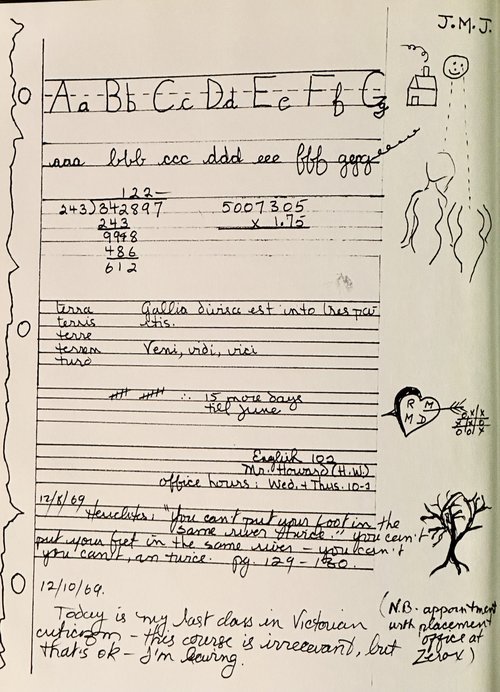 J.M.J.
Aa Bb Cc Dd Ee Ff Gg
aaa bbb ccc ddd eee fff ggg
122
243)342897 5007305
243 x 1.75
9948
486
612
terra Gallia divisa est into tres pa
terris etis.
terre
terram Veni, vidi, vici
∴ 15 more days
till June
R M
M D
O X X
X X O
O O X
English 102
Mr. Howard (H.W.)
office hours: Wed. + Thus. 10-2
12/8/69
Heraclites: "You can't put your foot in the
same river twice." You can't
put your feet in the same river - you can't
you can't, an twice. pg. 129-130.
12/10/69.
Today is my last class in Victorian
criticism - this course is irrelevant, but
that's ok - I'm leaving.
(N.B. appointment
with placement
office at
Zerox)